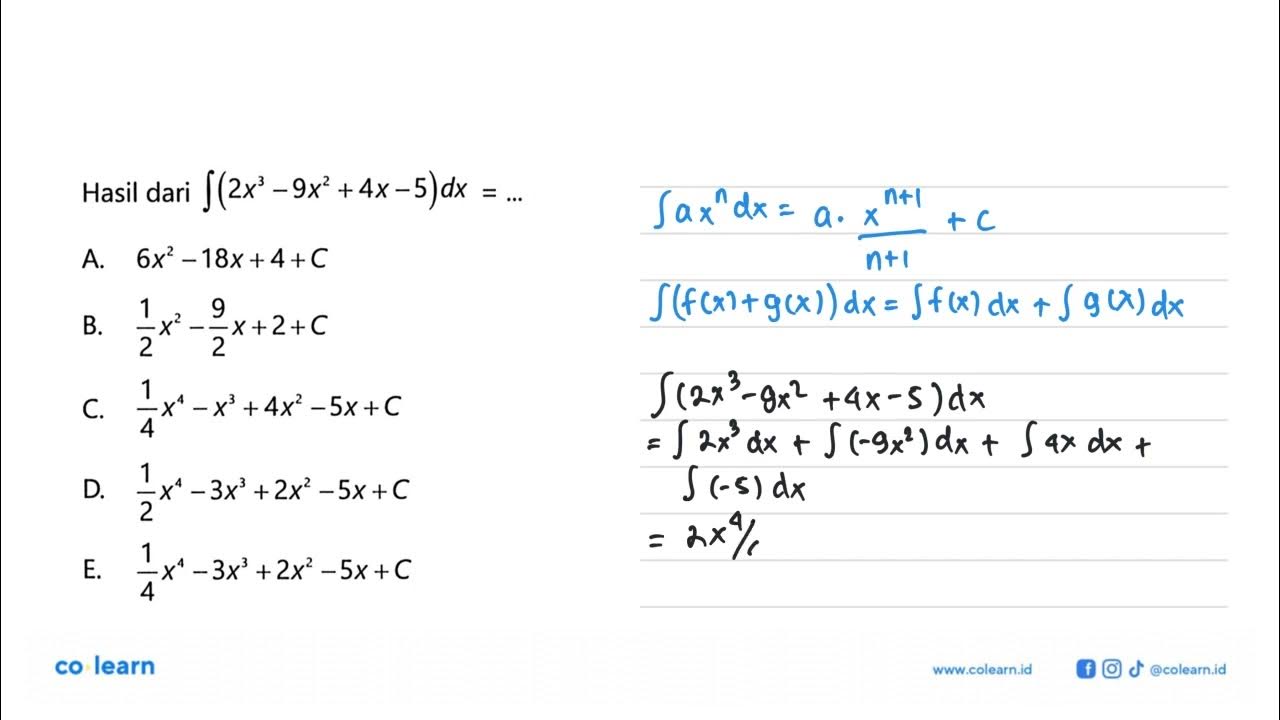 Hasil dari ∫(2x³ − 9x² + 4x − 5)dx = ...
A. 6x² − 18x + 4 + C
B. 1/2 x² − 9/2 x + 2 + C
C. 1/4 x⁴ − x³ + 4x² − 5x + C
D. 1/2 x⁴ − 3x³ + 2x² − 5x + C
E. 1/4 x⁴ − 3x³ + 2x² − 5x + C
∫axⁿ dx = a · xⁿ⁺¹/n+1 + C
∫(f(x) + g(x)) dx = ∫f(x) dx + ∫g(x) dx
∫(2x³ − 9x² + 4x − 5) dx
= ∫2x³ dx + ∫(−9x²) dx + ∫4x dx +
∫(−5) dx
= 2x⁴/
co·learn
www.colearn.id
@colearn.id